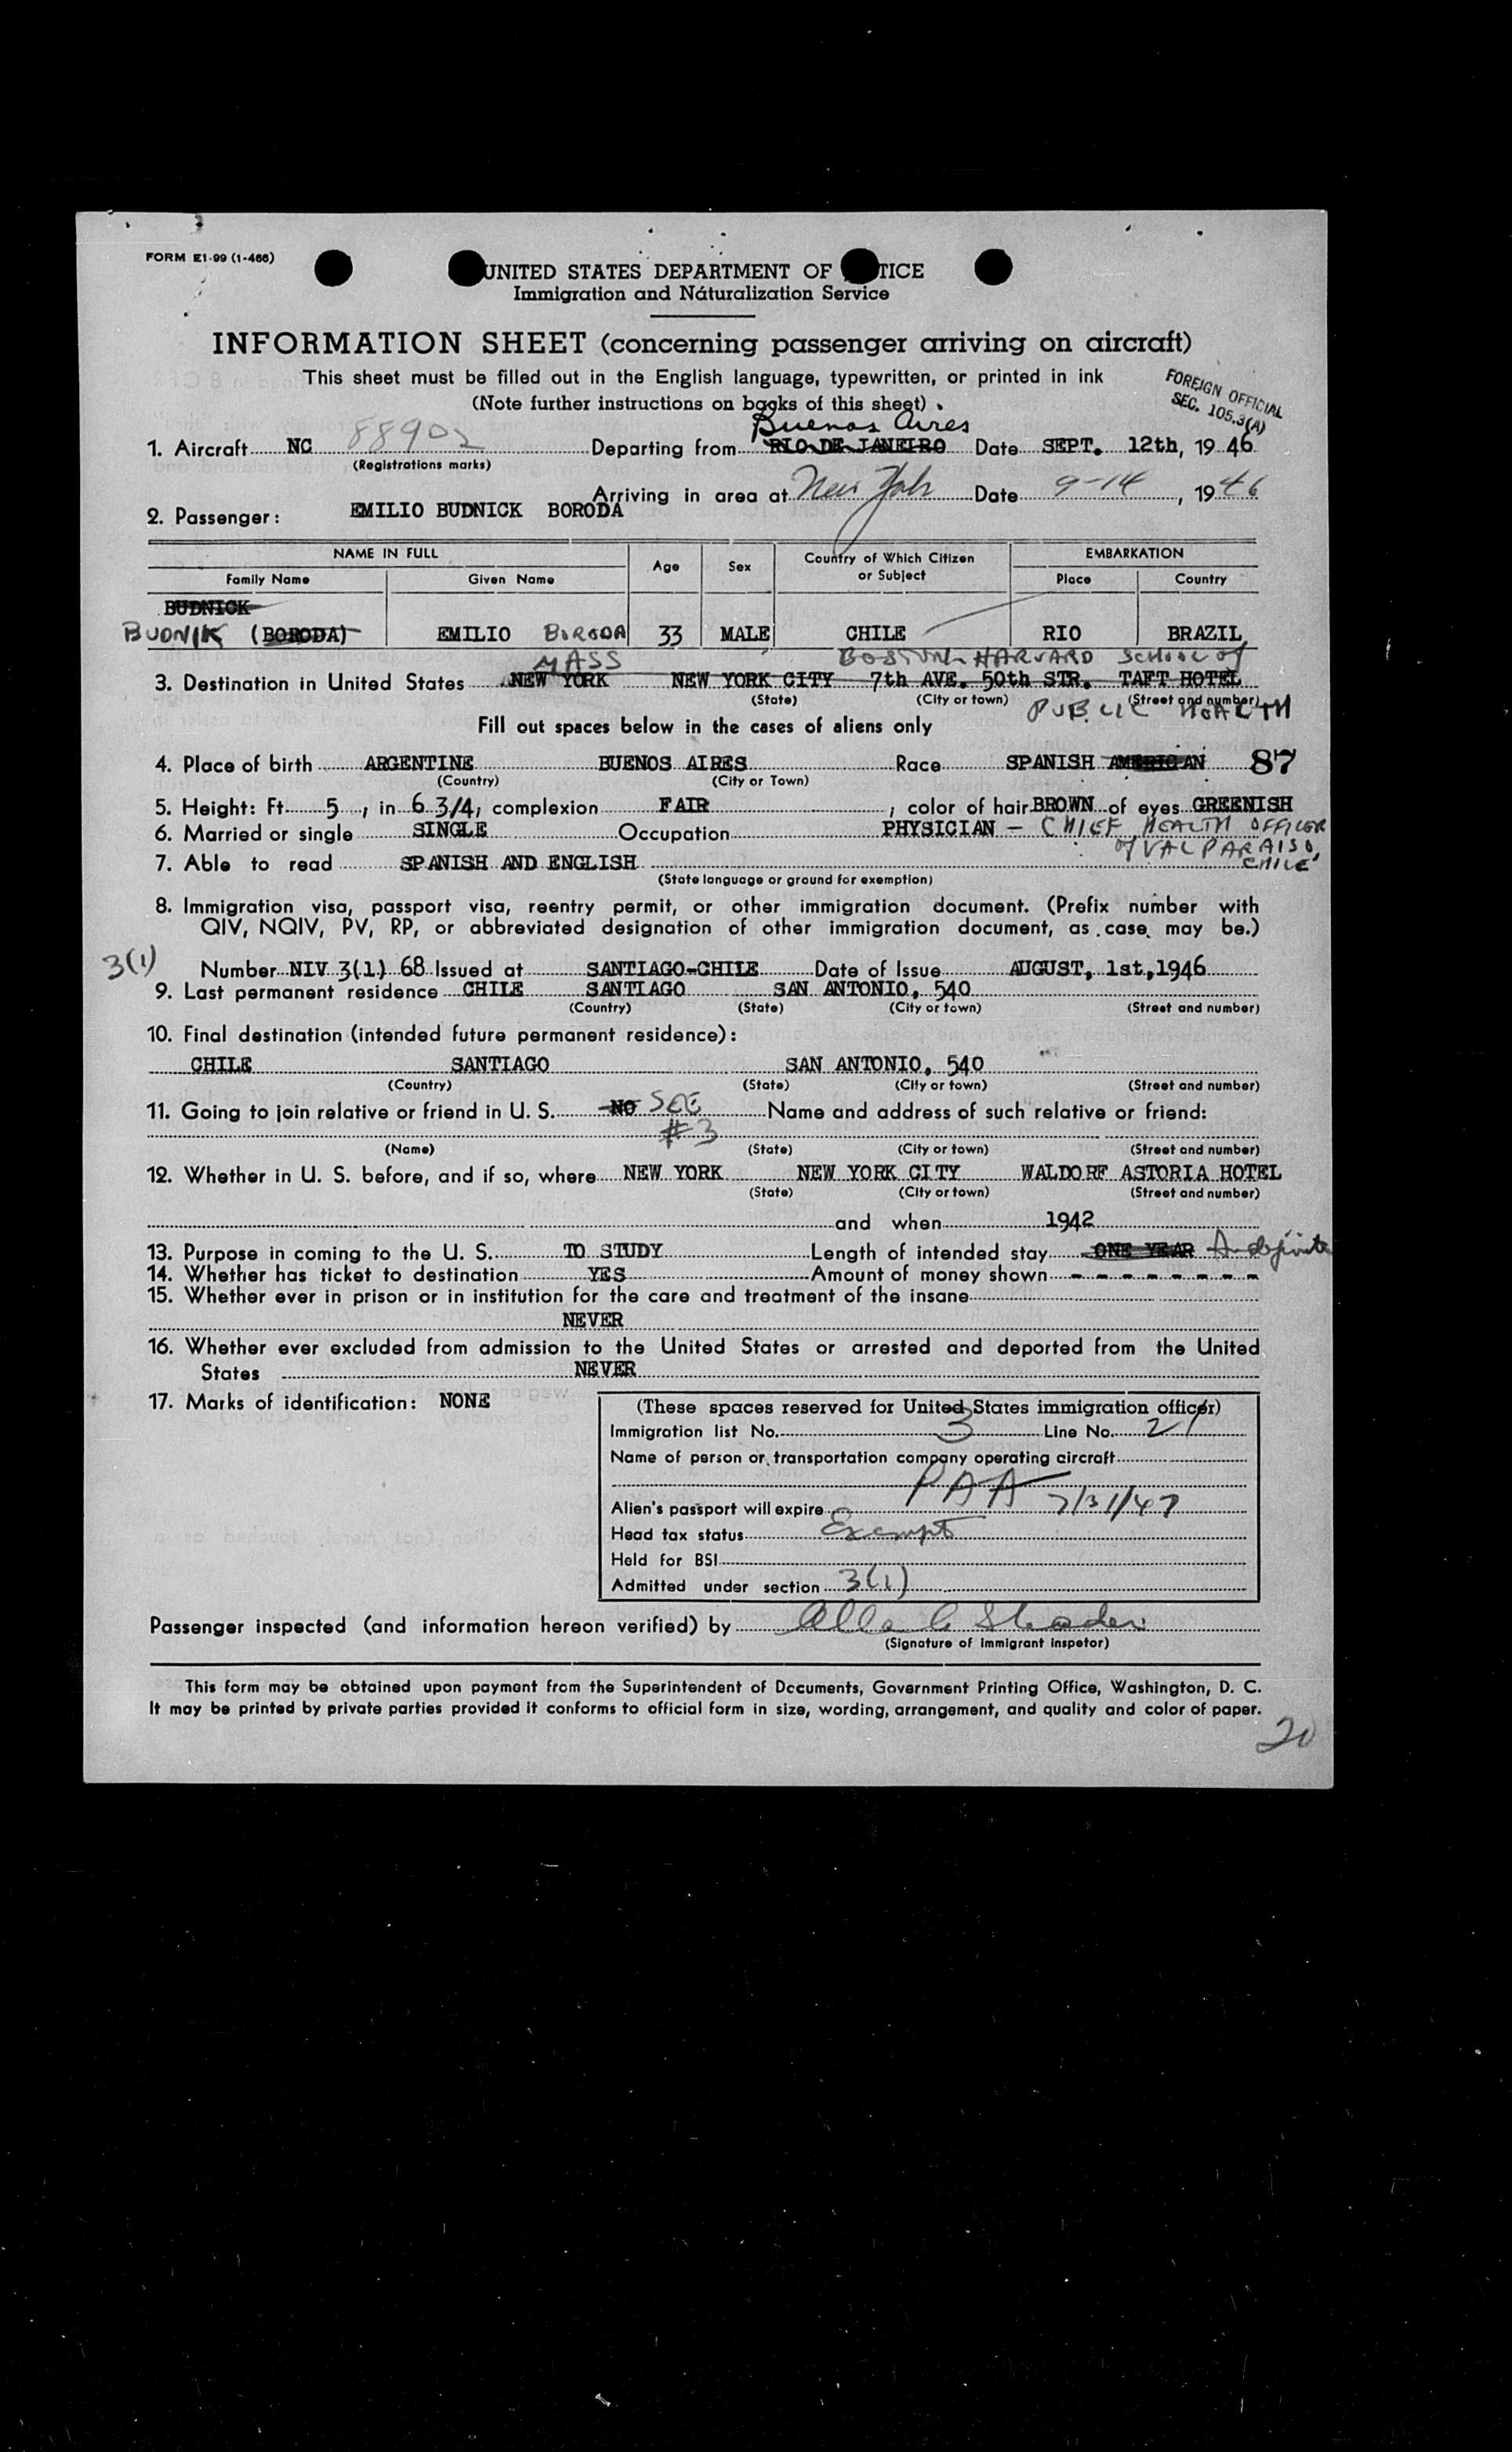 FORM E1-99 (1-466)
UNITED STATES DEPARTMENT OF TICE
Immigration and Naturalization Service
INFORMATION SHEET (concerning passenger arriving on aircraft)
This sheet must be filled out in the English language, typewritten, or printed in ink
(Note further instructions on backs of this sheet)
FOREIGN OFFICIAL
SEC. 105.3(A)
Buenos Aires
1. Aircraft NC 88902 Departing from RIO DE JANEIRO Date SEPT. 12th, 1946
(Registrations marks)
Arriving in area at New York Date 9-14, 1946
2. Passenger: EMILIO BUDNICK BORODA
NAME IN FULL Age Sex Country of Which Citizen or Subject EMBARKATION
Family Name Given Name Place Country
BUDNICK
BUDNIK (BORODA) EMILIO BORODA 33 MALE CHILE RIO BRAZIL
MASS BOSTON HARVARD SCHOOL of
3. Destination in United States NEW YORK NEW YORK CITY 7th AVE. 50th STR. TAFT HOTEL
(State) (City or town) (Street and number)
PUBLIC HEALTH
Fill out spaces below in the cases of aliens only
4. Place of birth ARGENTINE BUENOS AIRES Race SPANISH AMERICAN 87
(Country) (City or Town)
5. Height: Ft. 5, in 6 3/4, complexion FAIR; color of hair BROWN of eyes GREENISH
6. Married or single SINGLE Occupation PHYSICIAN - CHIEF HEALTH OFFICER
of VALPARAISO,
CHILE
7. Able to read SPANISH AND ENGLISH
(State language or ground for exemption)
8. Immigration visa, passport visa, reentry permit, or other immigration document. (Prefix number with
QIV, NQIV, PV, RP, or abbreviated designation of other immigration document, as case may be.)
3(1)
Number NIV 3(1) 68 Issued at SANTIAGO-CHILE Date of Issue AUGUST, 1st, 1946
9. Last permanent residence CHILE SANTIAGO SAN ANTONIO, 540
(Country) (State) (City or town) (Street and number)
10. Final destination (intended future permanent residence):
CHILE SANTIAGO SAN ANTONIO, 540
(Country) (State) (City or town) (Street and number)
11. Going to join relative or friend in U. S. NO SEE Name and address of such relative or friend:
#3
(Name) (State) (City or town) (Street and number)
12. Whether in U. S. before, and if so, where NEW YORK NEW YORK CITY WALDORF ASTORIA HOTEL
(State) (City or town) (Street and number)
and when 1942
13. Purpose in coming to the U. S. TO STUDY Length of intended stay ONE YEAR Indefinite
14. Whether has ticket to destination YES Amount of money shown - - - - - - - -
15. Whether ever in prison or in institution for the care and treatment of the insane
NEVER
16. Whether ever excluded from admission to the United States or arrested and deported from the United
States NEVER
17. Marks of identification: NONE
(These spaces reserved for United States immigration officer)
Immigration list No. 3 Line No. 21
Name of person or transportation company operating aircraft
PAA
Alien's passport will expire 7/31/47
Head tax status Exempt
Held for BSI
Admitted under section 3(1)
Passenger inspected (and information hereon verified) by
(Signature of Immigrant Inspetor)
This form may be obtained upon payment from the Superintendent of Documents, Government Printing Office, Washington, D. C.
It may be printed by private parties provided it conforms to official form in size, wording, arrangement, and quality and color of paper.
20